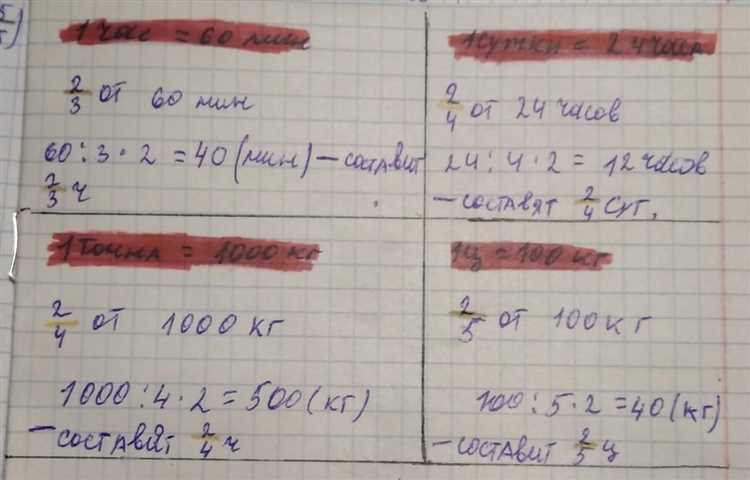 1 час = 60 мин
2/3 от 60 мин
60 : 3 · 2 = 40 (мин) – составит
2/3 ч
1 сутки = 24 часа
2/4 от 24 часов
24 : 4 · 2 = 12 часов
– составят 2/4 сут.
1 тонна = 1000 кг
2/4 от 1000 кг
1000 : 4 · 2 = 500 (кг)
– составят 2/4 ч
1ц = 100 кг
2/5 от 100 кг
100 : 5 · 2 = 40 (кг)
– составит 2/5 ц